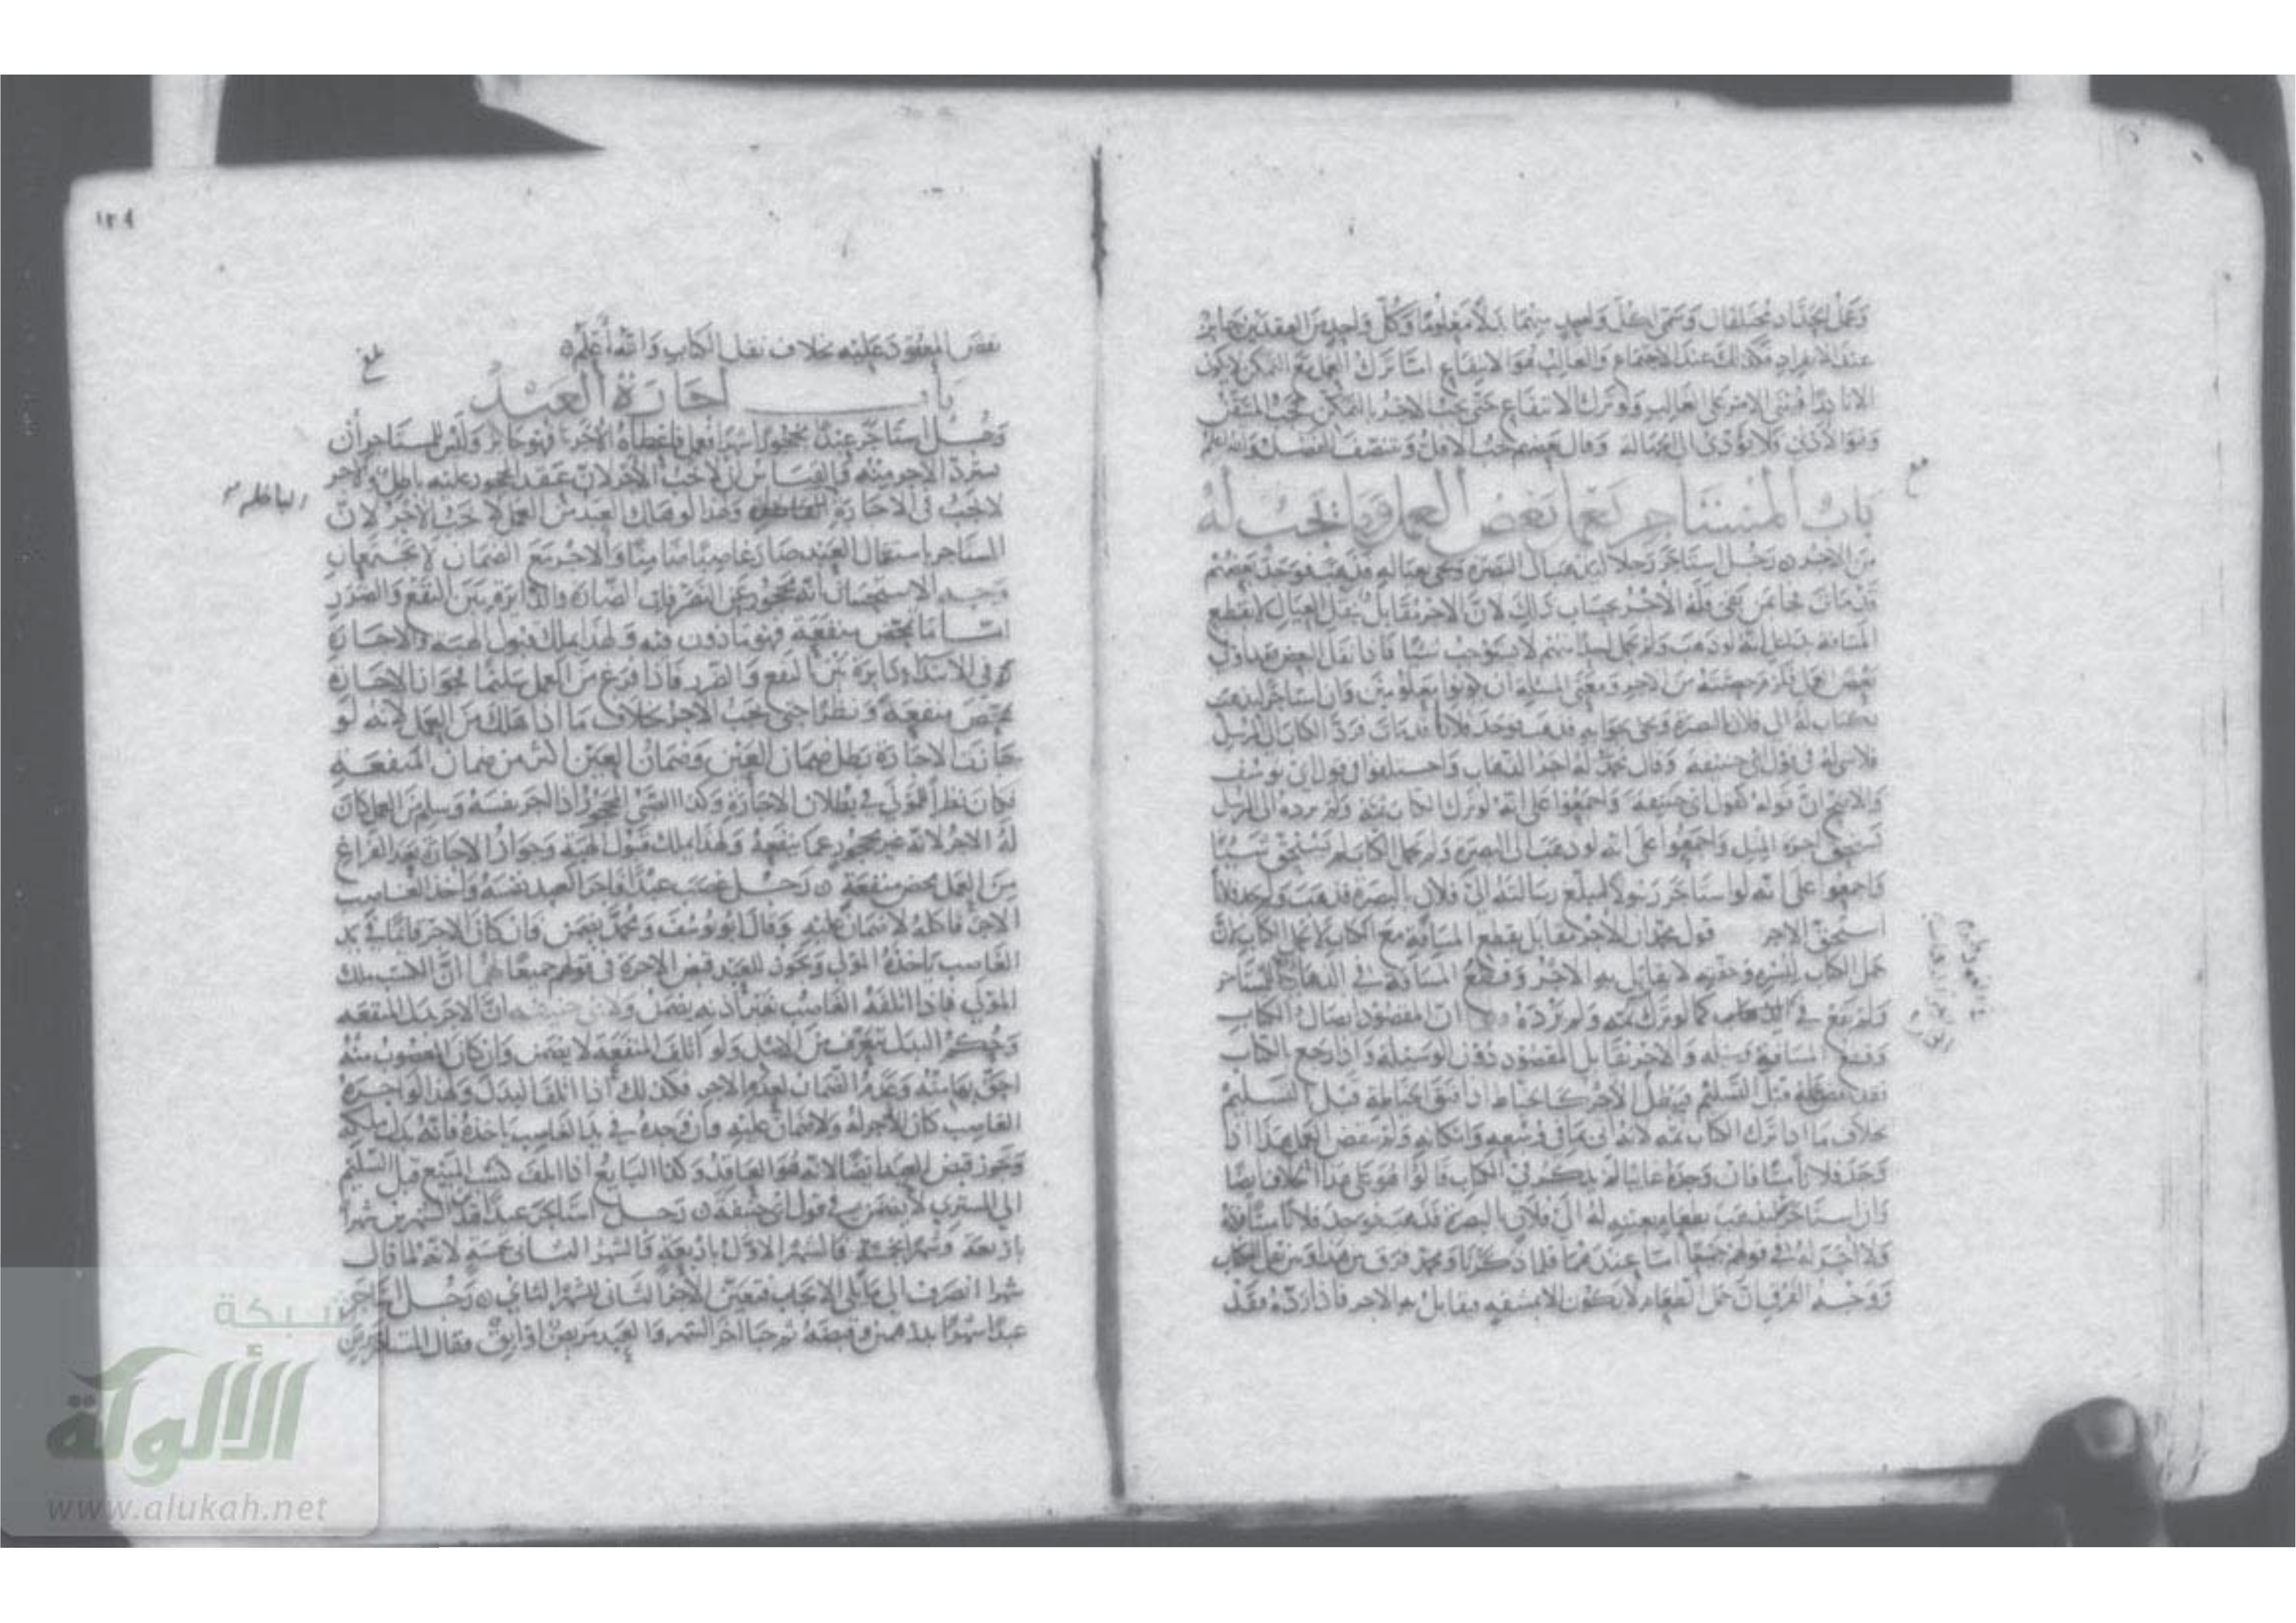 وعمل الحداد مختلفان وسمى لكل واحد منهما بدلا معلوما وكل واحد من العقدين جائز
عند الانفراد فكذلك عند الاجتماع والغالب هو الانتفاع اما ترك العمل مع التمكن لا يكون
الا نادرا فبنى الامر على الغالب ولو ترك الانتفاع حتى يجب الاجر بالتمكن يجب المتيقن
وهو الادنى ولا يؤدى الى الجهالة وقال بعضهم يجب الاقل وينتصف الفضل والله اعلم
باب المستاجر يعمل بعض العمل وما يجب له
من الاجر رجل استاجر رجلا ليذهب الى البصرة ويجئ بعياله فذهب فوجد بعضهم
قد مات فجاء بمن بقى فله الاجر بحساب ذلك لان الاجر مقابل بنقل العيال لا بقطع
المسافة بدليل انه لو ذهب ولم يحمل احدا منهم لا يستوجب شيئا فاذا نقل البعض فقد اوفى
بعض العمل فلزم حصته من الاجر ومعنى المسئلة ان يكونوا معلومين وان استاجر ليذهب
بكتاب له الى فلان بالبصرة ويجئ بجوابه فذهب فوجد فلانا قد مات فرد الكتاب الى المرسل
فلا شئ له في قول ابى حنيفة وقال محمد له اجر الذهاب واختلفوا في قول ابى يوسف
والاصح ان قوله كقول ابى حنيفة واجمعوا على انه لو ترك الكتاب ثمة ولم يرده الى المرسل
يستحق اجرة المثل واجمعوا على انه لو ذهب الى البصرة ولم يحمل الكتاب لم يستحق شيئا
واجمعوا على انه لو استاجر رسولا ليبلغ رسالته الى فلان بالبصرة فذهب ولم يجد فلانا
استحق الاجر قول محمد ان الاجر مقابل بقطع المسافة مع الكتاب لا بحمل الكتاب لان
حمل الكتاب ليسره وخفته لا يقابل به الاجر وقطع المسافة في الذهاب للمستاجر
ولم يقع في كما لو ترك ثمه ولم يرده ان المقصود ايصال الكتاب
وقطع المسافة وسيلة والاجر يقابل المقصود دون الوسيلة واذا رجع بالكتاب
نقض عمله قبل التسليم فيبطل الاجر كالخياط اذا فتق الخياطة قبل التسليم
بخلاف ما اذا ترك الكتاب ثمه لانه اتى بما في وسعه وامكانه ولم ينقض العمل هذا اذا
وجد فلانا ميتا فان وجده غائبا لم يذكر في الكتاب قالوا هو على هذا الخلاف ايضا
وان استاجر ليذهب بطعام بعينه له الى فلان بالبصرة فذهب فوجد فلانا ميتا فرده
ولا اجر له في قولهم جميعا اما عندهما فلما ذكرنا ومحمد فرق بين هذا وبين نقل الكتاب
ووجه الفرق ان حمل الطعام لا يكون الا بمشقة يقابل به الاجر فاذا رده فقد
١٢٩
نقض المعقود عليه بخلاف نقل الكتاب والله اعلم
بلغ
باب اجارة العبد
رجل استاجر عبدا محجورا شهرا فعمل فاعطاه الاجر فهو جائز وليس للمستاجر ان
يسترد الاجر منه والقياس ان لا يجب الاجر لان عقد المحجور عليه باطل والاجر
لا يجب في الاجارة الباطلة وهذا لو هلك العبد من العمل لا يجب الاجر لان
الباطلة
المستاجر باستعمال العبد صار غاصبا ضامنا والاجر مع الضمان لا يجتمعان
وجه الاستحسان انه محجور عن التصرفات الضارة والدائرة بين النفع والضرر
اما ما يختص منفعة فهو ماذون فيه ولهذا يملك قبول الهبة والاجارة
في الابتداء دائرة بين النفع والضرر فاذا فرغ من العمل سليما فجواز الاجارة
تمحض منفعة ونظرا حتى يجب الاجر بخلاف ما اذا هلك من العمل لانه لو
جازت الاجارة بطل ضمان العين وضمان العين اكثر من ضمان المنفعة
فكان نظرا للمولى في بطلان الاجارة وكذا الصبي المحجور اذا اجر نفسه وسلم من العمل كان
له الاجر لانه غير محجور عما ينفعه ولهذا يملك قبول الهبة وجواز الاجارة بعد الفراغ
من العمل محض منفعة رجل غصب عبدا فاجر العبد نفسه واخذ الغاصب
الاجر فاكله لا ضمان عليه وقال ابو يوسف ومحمد يضمن فان كان الاجر قائما في يد
الغاصب ياخذه المولى ويجوز للعبد قبض الاجرة في قولهم جميعا لهما ان الكسب ملك
المولى فاذا اتلفه الغاصب بغير اذنه يضمن ولابى حنيفة ان الاجر بدل المنفعه
وحكم البدل يتعرف من الاصل ولو اتلف المنفعة لا يضمن وان كان المغصوب منه
احق بها منه وعدم الضمان لعدم الاجر فكذلك اذا اتلف البدل ولهذا لو اجره
الغاصب كان الاجر له ولا ضمان عليه وان وجده في يد الغاصب ياخذه فانه بدل ملكه
ويجوز قبض العبد ايضا لانه هو العاقد وكذا البايع اذا اتلف كسب المبيع قبل التسليم
الى المشترى لا يضمن في قول ابى حنيفة رجل استاجر عبدا هذين الشهرين شهرا
باربعة وشهرا بخمسة فالشهر الاول باربعة والشهر الثانى بخمسة لانه لما قال
شهرا انصرف الى ما يلى الايجاب فتعين الاخر الثانى للشهر الثانى رجل استاجر
عبدا شهرا بدرهم وقبضه ثم جا اخر الشهر والعبد مريض او ابق فقال المستاجر
شبكة
الألوكة
www.alukah.net